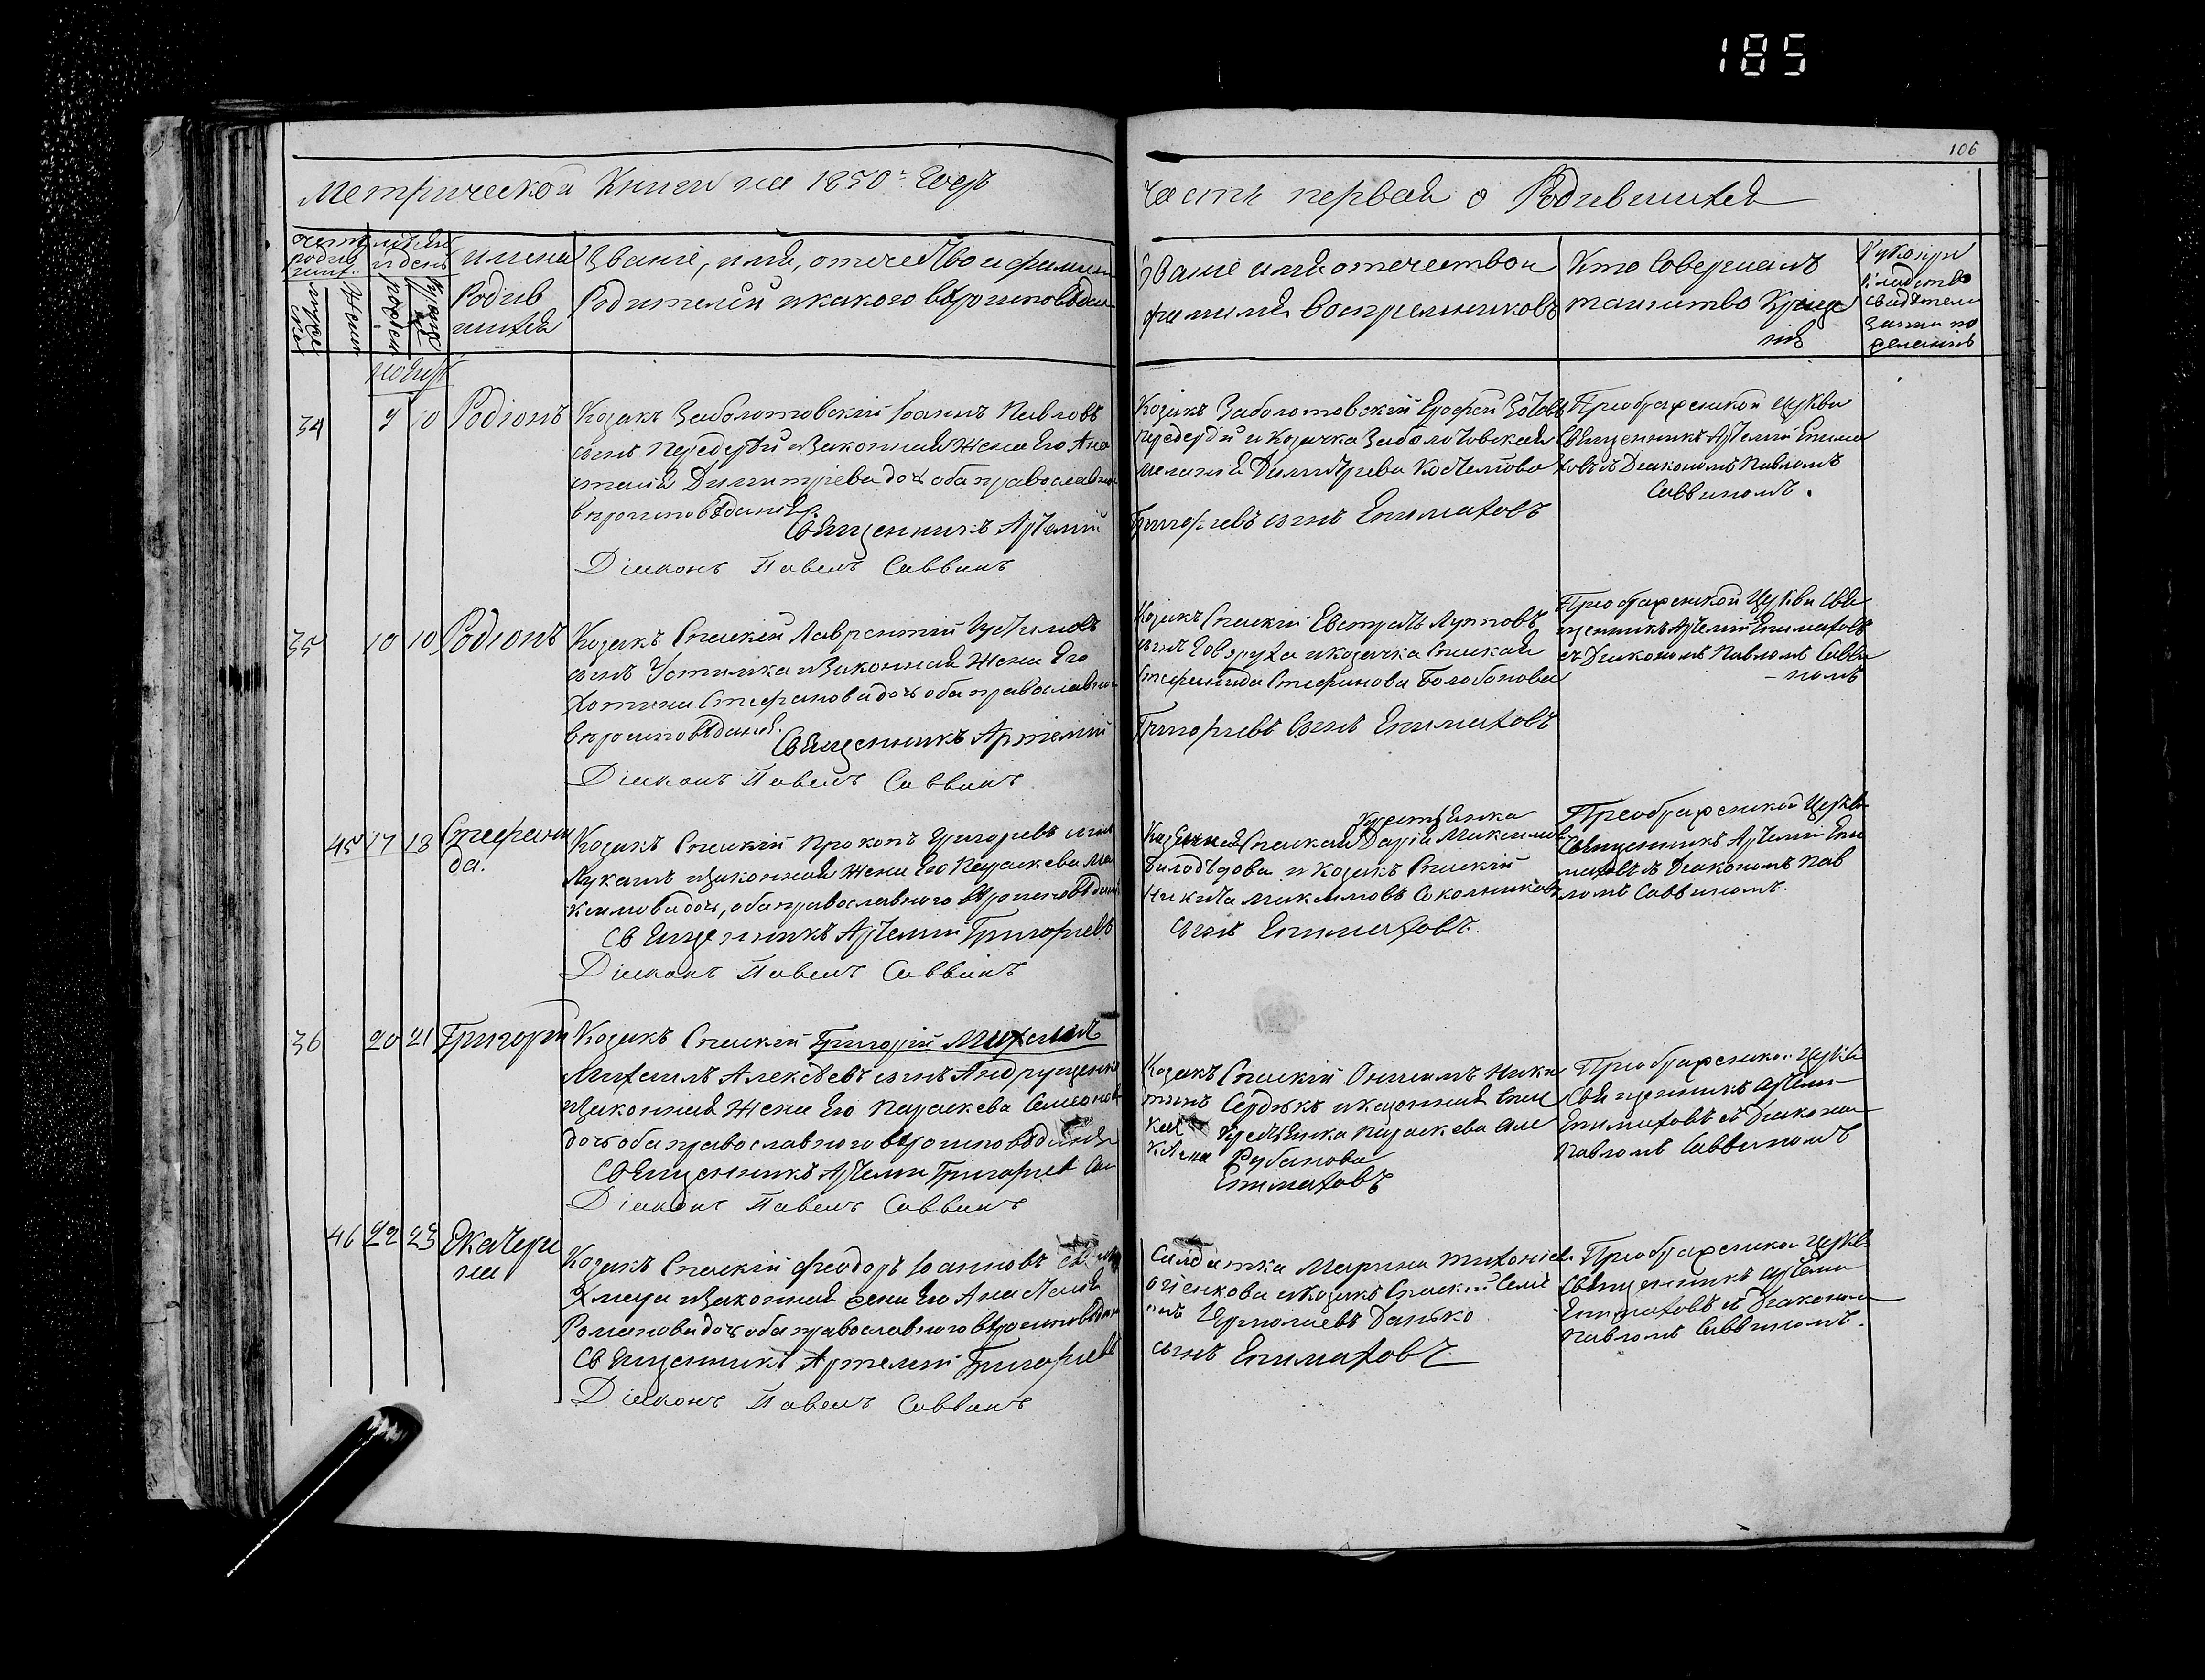 185
106
Метрической Книги на 1850: Годъ
Часть первая о Родившихся
имена
Родив
шихся
Званіе, имя, отечество и фамилія
Родителей и какого вѣроисповѣдан
Званіе имя отечество и
фамилія воспріемниковъ
Кто совершалъ
таинство Креще
нія
34 9 10 Родіонъ
Козакъ Заболотовскій Іоаннъ Павловъ
сынъ Передерій и Законная Жена Его Ана
стасія Димитріева дочь оба православнаго
вѣроисповѣданія.
Священникъ Артемій
Діаконъ Павелъ Саввинъ
Козакъ Заболотовскій Ерофей Зотовъ
Передерій и Козачка Заболотовская
Меланія Димитріева
Григорьевъ сынъ Епимаховъ
Преображенской Церкви
Священникъ Артемій Епима
ховъ съ Діакономъ Павломъ
Саввиномъ.
35 10 10 Родіонъ
Козакъ Спаскій Лаврентій Устимовъ
сынъ Устимка и Законная Жена Его
Хотина Стефанова дочь оба православнаго
вѣроисповѣданія.
Священникъ Артемій
Діаконъ Павелъ Саввинъ
Козакъ Спаскій Евстратъ Луповъ
сынъ Говоруха и козачка Спаская
Стефанида Стефанова Болобонова
Григорьевъ Сынъ Епимаховъ
Преображенской Церкви Свя
щенникъ Артемій Епимаховъ
съ Діакономъ Павломъ Савви
номъ
45 17 18 Стефани
да.
Козакъ Спаскій Прокопъ Григорьевъ сынъ
Лукашъ и Законная Жена Его Параскева Ма
ксимова дочь, оба православнаго вѣроисповѣданія
Священникъ Артемій Григорьевъ
Діаконъ Павелъ Саввинъ
Крестьянка
Спаская Дарія Максимова
и Козакъ Спаскій
Никита Максимовъ Сокольниковъ
сынъ Епимаховъ.
Преображенской Церкви
Священникъ Артемій Епи
маховъ съ Діакономъ Пав
ломъ Саввиномъ.
36 20 21 Григорій
Козакъ Спаскій Григорій Михаилъ
Михаилъ Алексѣевъ сынъ Андрущенко
и Законная Жена Его Параскева Семенова
дочь оба православнаго вѣроисповѣданія
Священникъ Артемій Григорьевъ Сы
Діаконъ Павелъ Саввинъ
Козакъ Спаскій Онисимъ Ники
тинъ Сердюкъ и казенная Спас
кая Крестьянка Параскева Але
ксѣева Рубанова
Епимаховъ
Преображенской Церкви
Священникъ Артемій
Епимаховъ съ Діакономъ
Павломъ Саввиномъ
46 22 23 Екатери
на
Козакъ Спаскій Феодоръ Іоанновъ сынъ
Хмара и Законная жена Его Анастасія
Романова дочь оба православнаго вѣроисповѣдан
Священникъ Артемій Григорьевъ
Діаконъ Павелъ Саввинъ
Солдатка Марина Тихоніева
и козакъ Спаскій Семе
нъ Ермолаевъ Данько
сынъ Епимаховъ
Преображенской Церкви
Священникъ Артемій
Епимаховъ съ Діакономъ
Павломъ Саввиномъ.